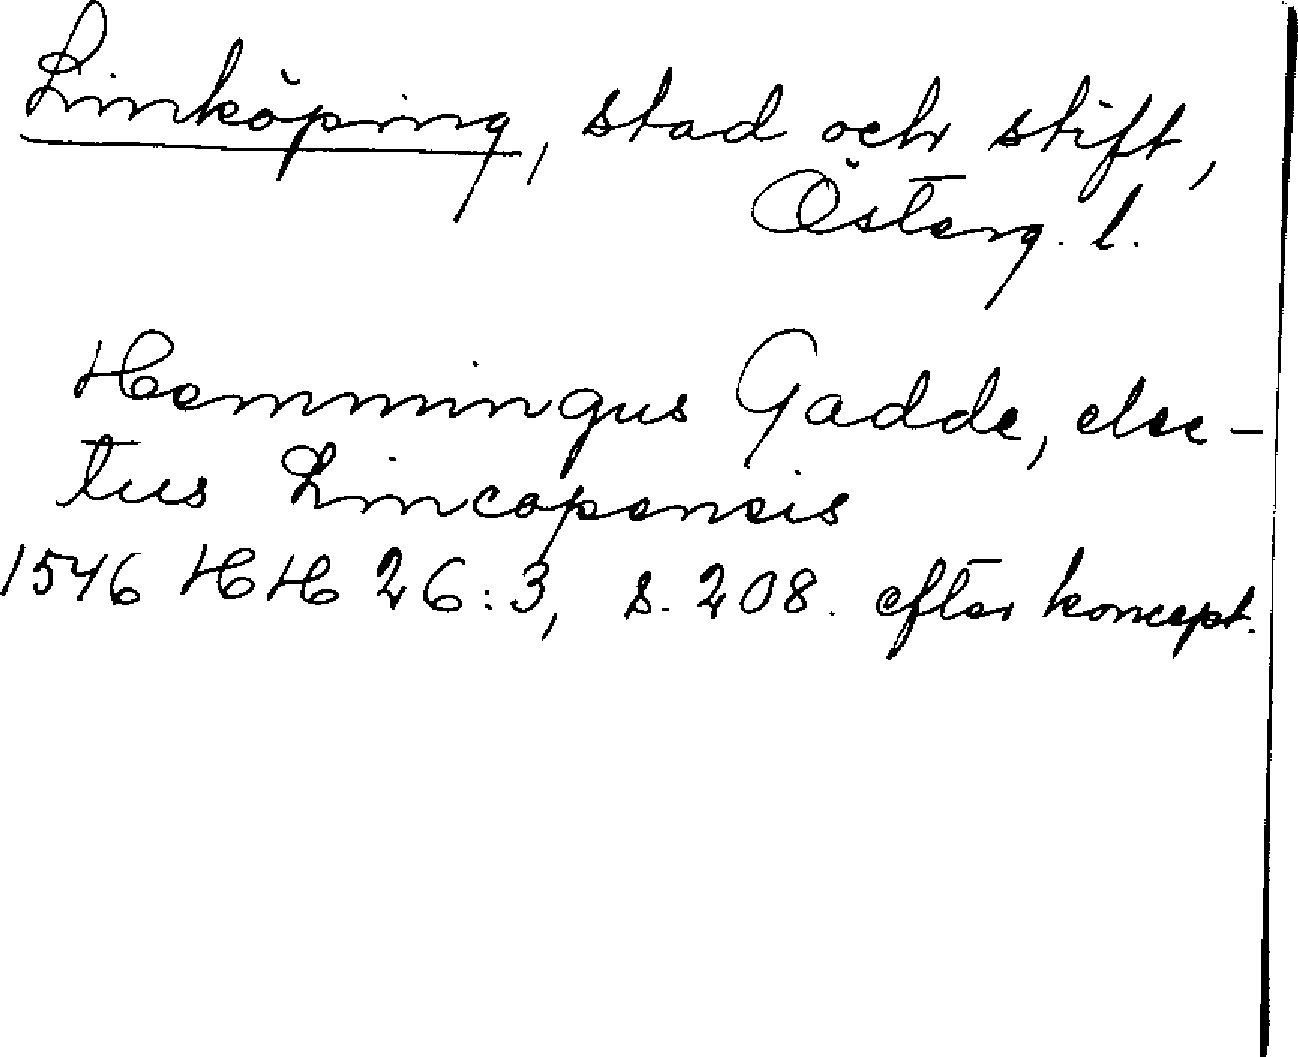 Linköping, stad och stift,
Österg. l.
Hemmingus Gadde, elec-
tus Lincopensis
1546 HH 26:3, s. 208. efter koncept.